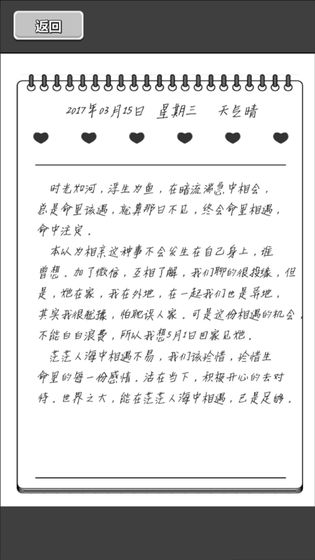 返回
2017年03月15日 星期三 天气晴
时光如河，浮生为鱼，在暗流湍急中相会，
总是命里该遇，就算那日不见，终会命里相遇，
命中注定．
本以为相亲这种事不会发生在自己身上，谁
曾想．加了微信，互相了解，我们聊的很投缘，但
是，她在家，我在外地，在一起我们也是异地，
其实我很尴尬，怕耽误人家．可是这份相遇的机会，
不能白白浪费，所以我想5月1日回家见她．
茫茫人海中相遇不易，我们该珍惜，珍惜生
命里的每一份感情．活在当下，积极开心的去对
待．世界之大，能在茫茫人海中相遇，已是足够．